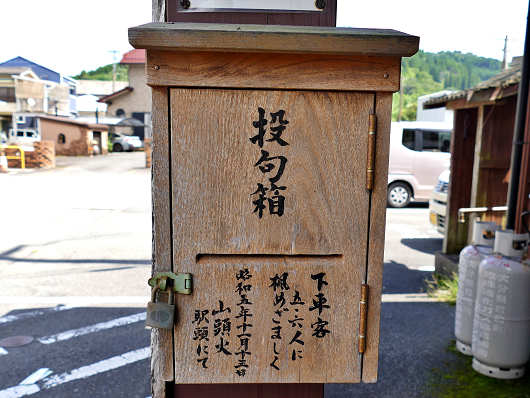 投句箱
下車客
五・六人に
楓めざましく
昭和五年十一月十三日
山頭火
駅頭にて